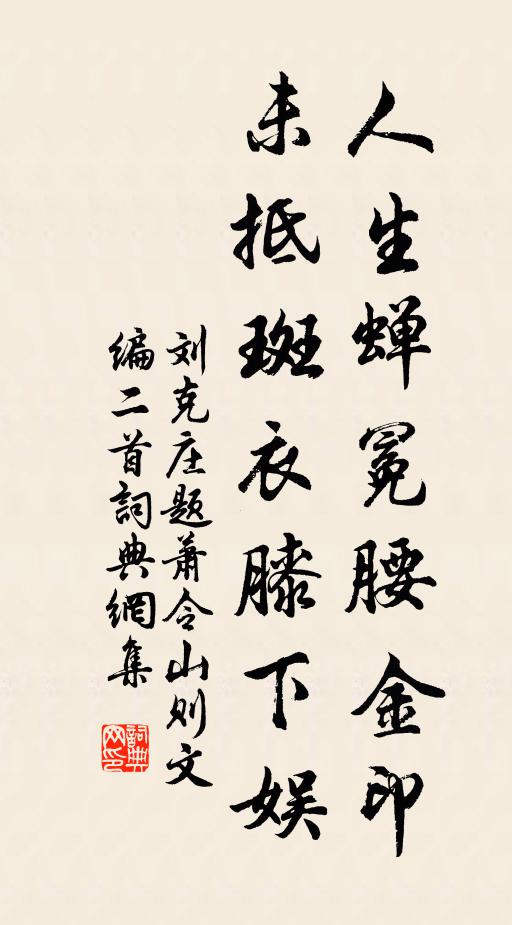 人生蝉冕腰金印
未抵斑衣膝下娱
刘克庄题萧令山则文
编二首詞典網集
詞典网印